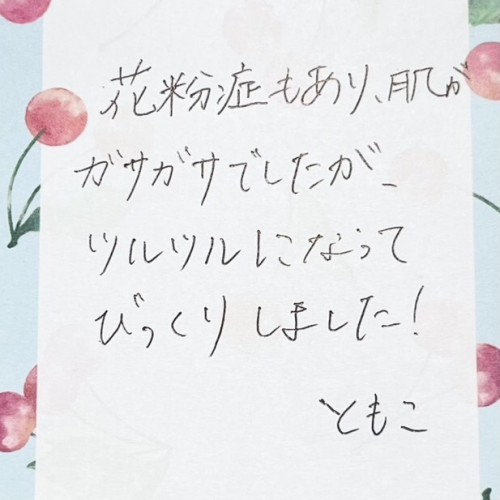 花粉症もあり、肌が
ガサガサでしたが、
ツルツルになって
びっくりしました!
ともこ